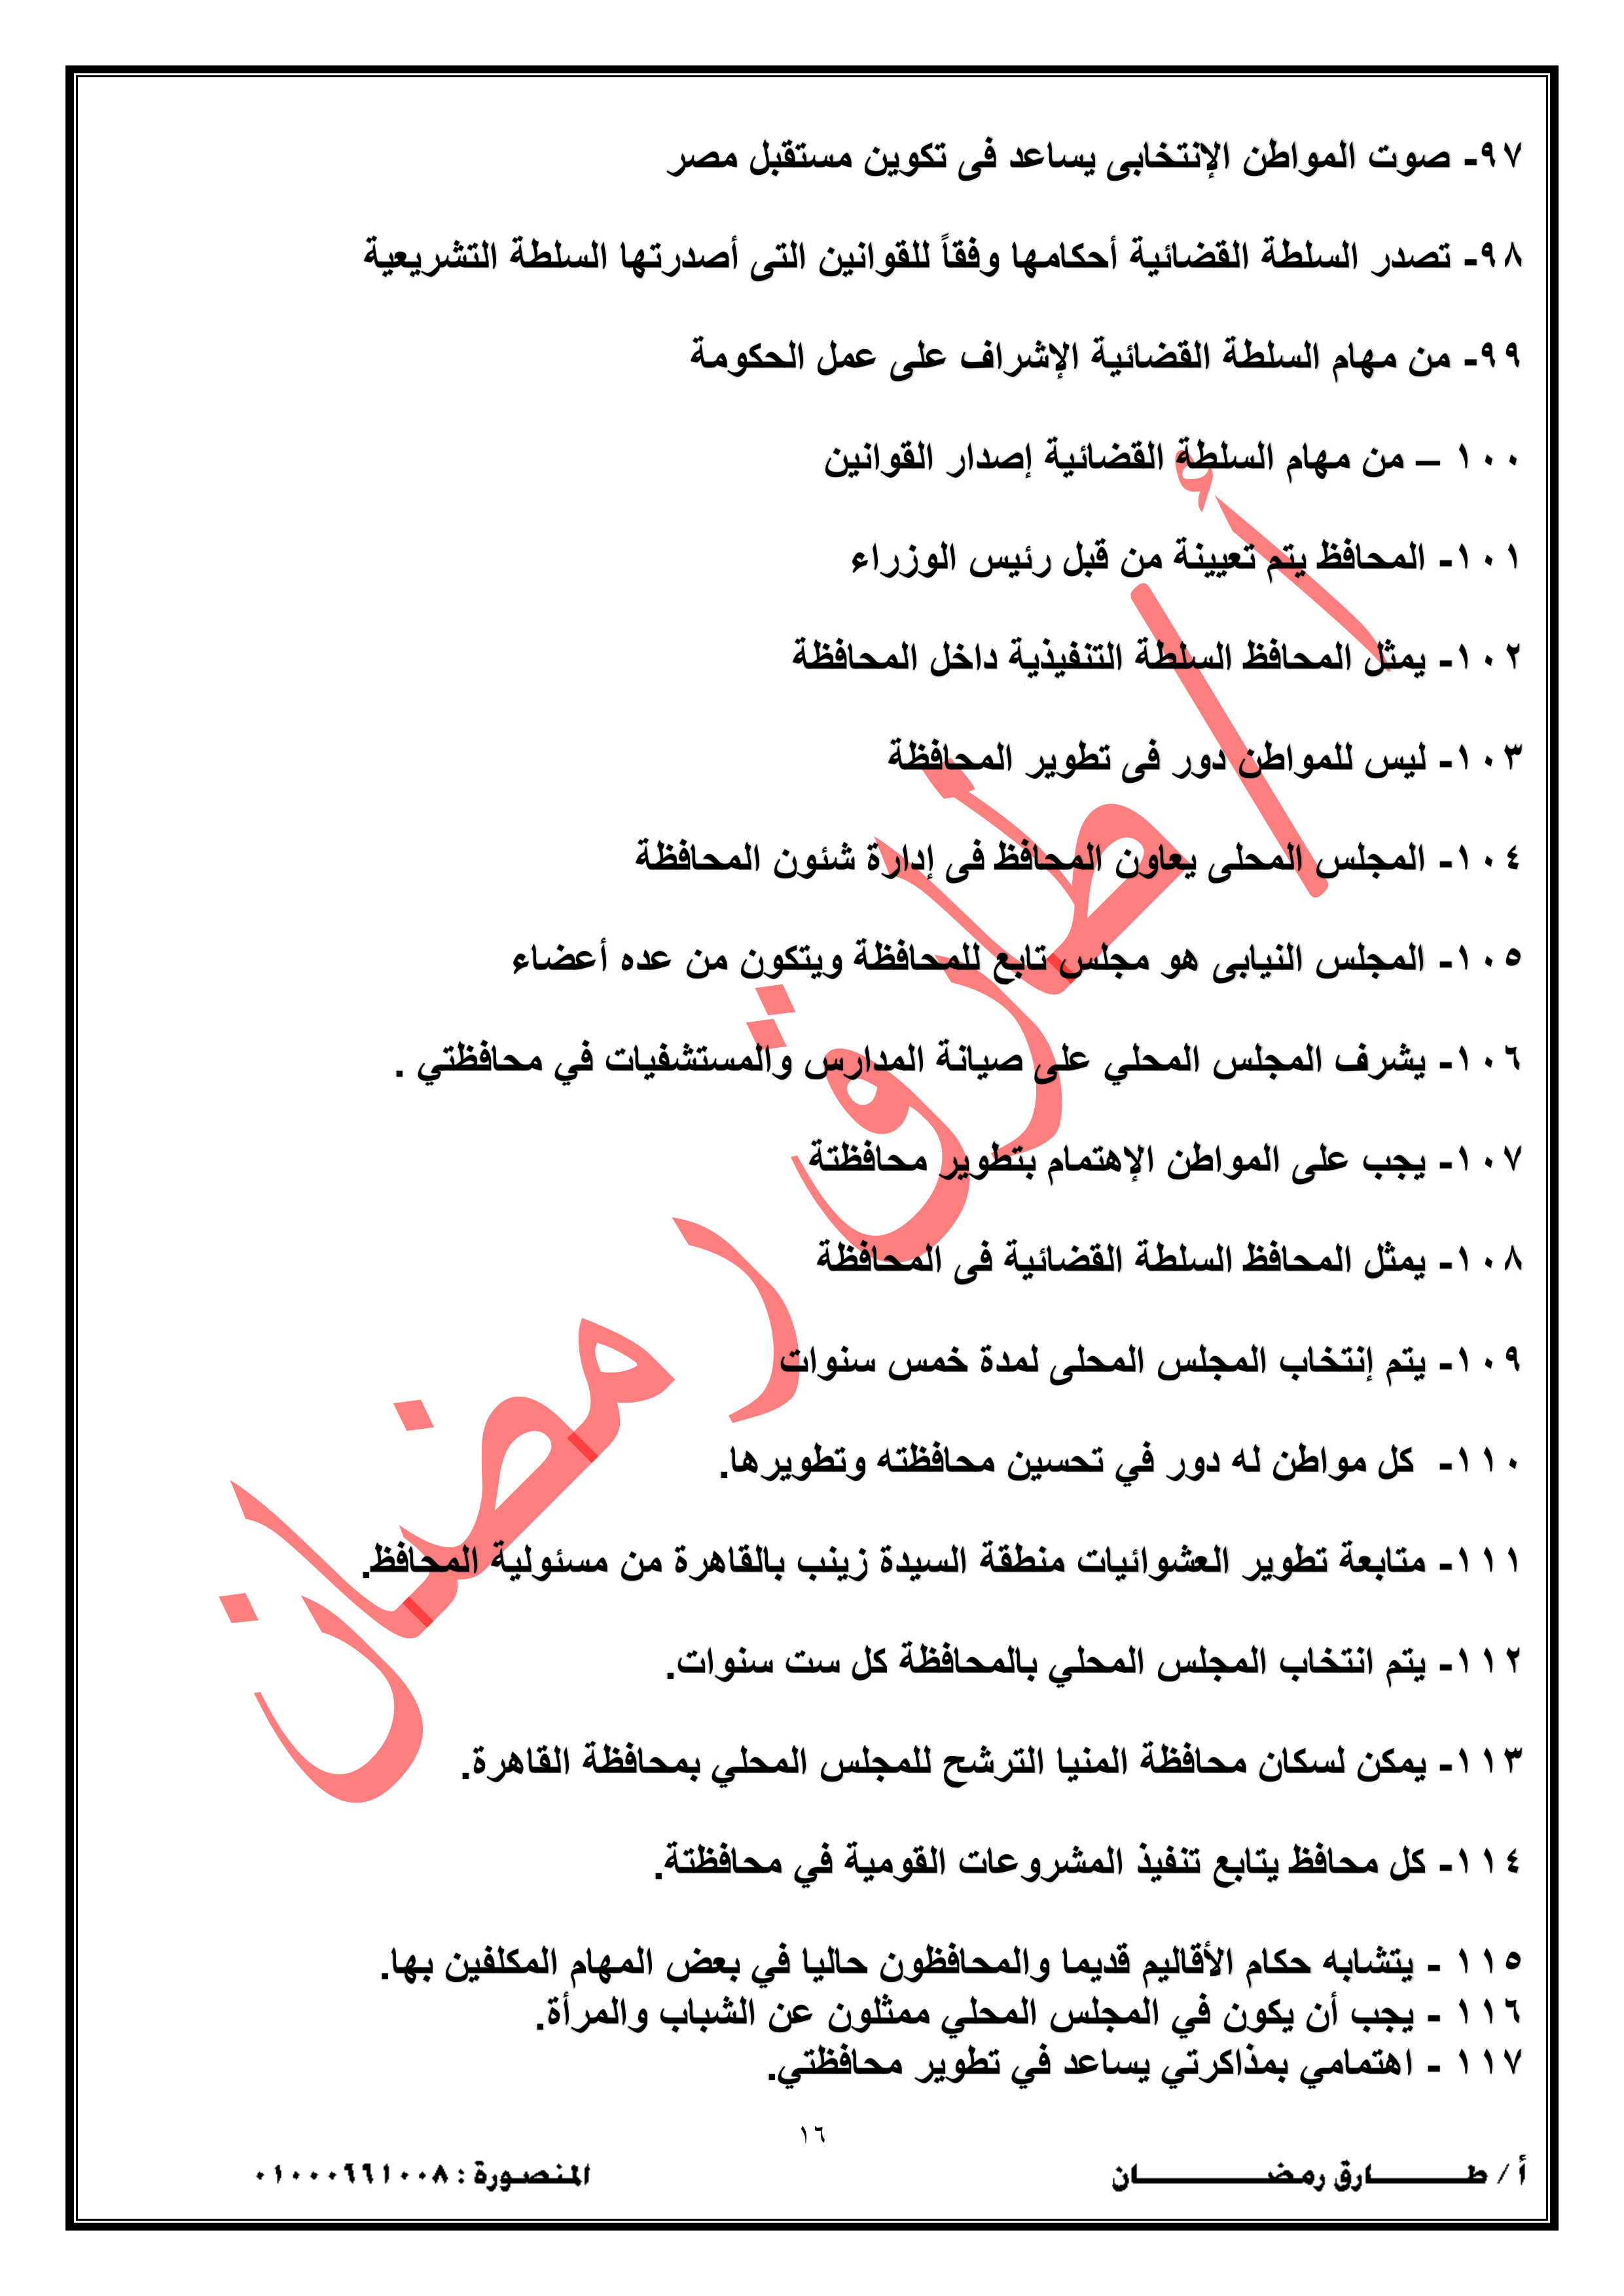 ٩٧- صوت المواطن الإنتخابى يساعد فى تكوين مستقبل مصر
٩٨- تصدر السلطة القضائية أحكامها وفقاً للقوانين التى أصدرتها السلطة التشريعية
٩٩- من مهام السلطة القضائية الإشراف على عمل الحكومة
١٠٠ – من مهام السلطة القضائية إصدار القوانين
١٠١- المحافظ يتم تعيينة من قبل رئيس الوزراء
١٠٢- يمثل المحافظ السلطة التنفيذية داخل المحافظة
١٠٣- ليس للمواطن دور فى تطوير المحافظة
١٠٤- المجلس المحلى يعاون المحافظ فى إدارة شئون المحافظة
١٠٥- المجلس النيابى هو مجلس تابع للمحافظة ويتكون من عده أعضاء
١٠٦- يشرف المجلس المحلي على صيانة المدارس والمستشفيات في محافظتي .
١٠٧- يجب على المواطن الإهتمام بتطوير محافظتة
١٠٨- يمثل المحافظ السلطة القضائية فى المحافظة
١٠٩- يتم إنتخاب المجلس المحلى لمدة خمس سنوات
١١٠- كل مواطن له دور في تحسين محافظته وتطويرها.
١١١- متابعة تطوير العشوائيات منطقة السيدة زينب بالقاهرة من مسئولية المحافظ.
١١٢- يتم انتخاب المجلس المحلي بالمحافظة كل ست سنوات.
١١٣- يمكن لسكان محافظة المنيا الترشح للمجلس المحلي بمحافظة القاهرة.
١١٤- كل محافظ يتابع تنفيذ المشروعات القومية في محافظتة.
١١٥ - يتشابه حكام الأقاليم قديما والمحافظون حاليا في بعض المهام المكلفين بها.
١١٦ - يجب أن يكون في المجلس المحلي ممثلون عن الشباب والمرأة.
١١٧ - اهتمامي بمذاكرتي يساعد في تطوير محافظتي.
أ / طارق رمضان
١٦
أ / طــــــــــارق رمضــــــــــــــان
المنصورة : ٠١٠٠٠٦٦١٠٠٨